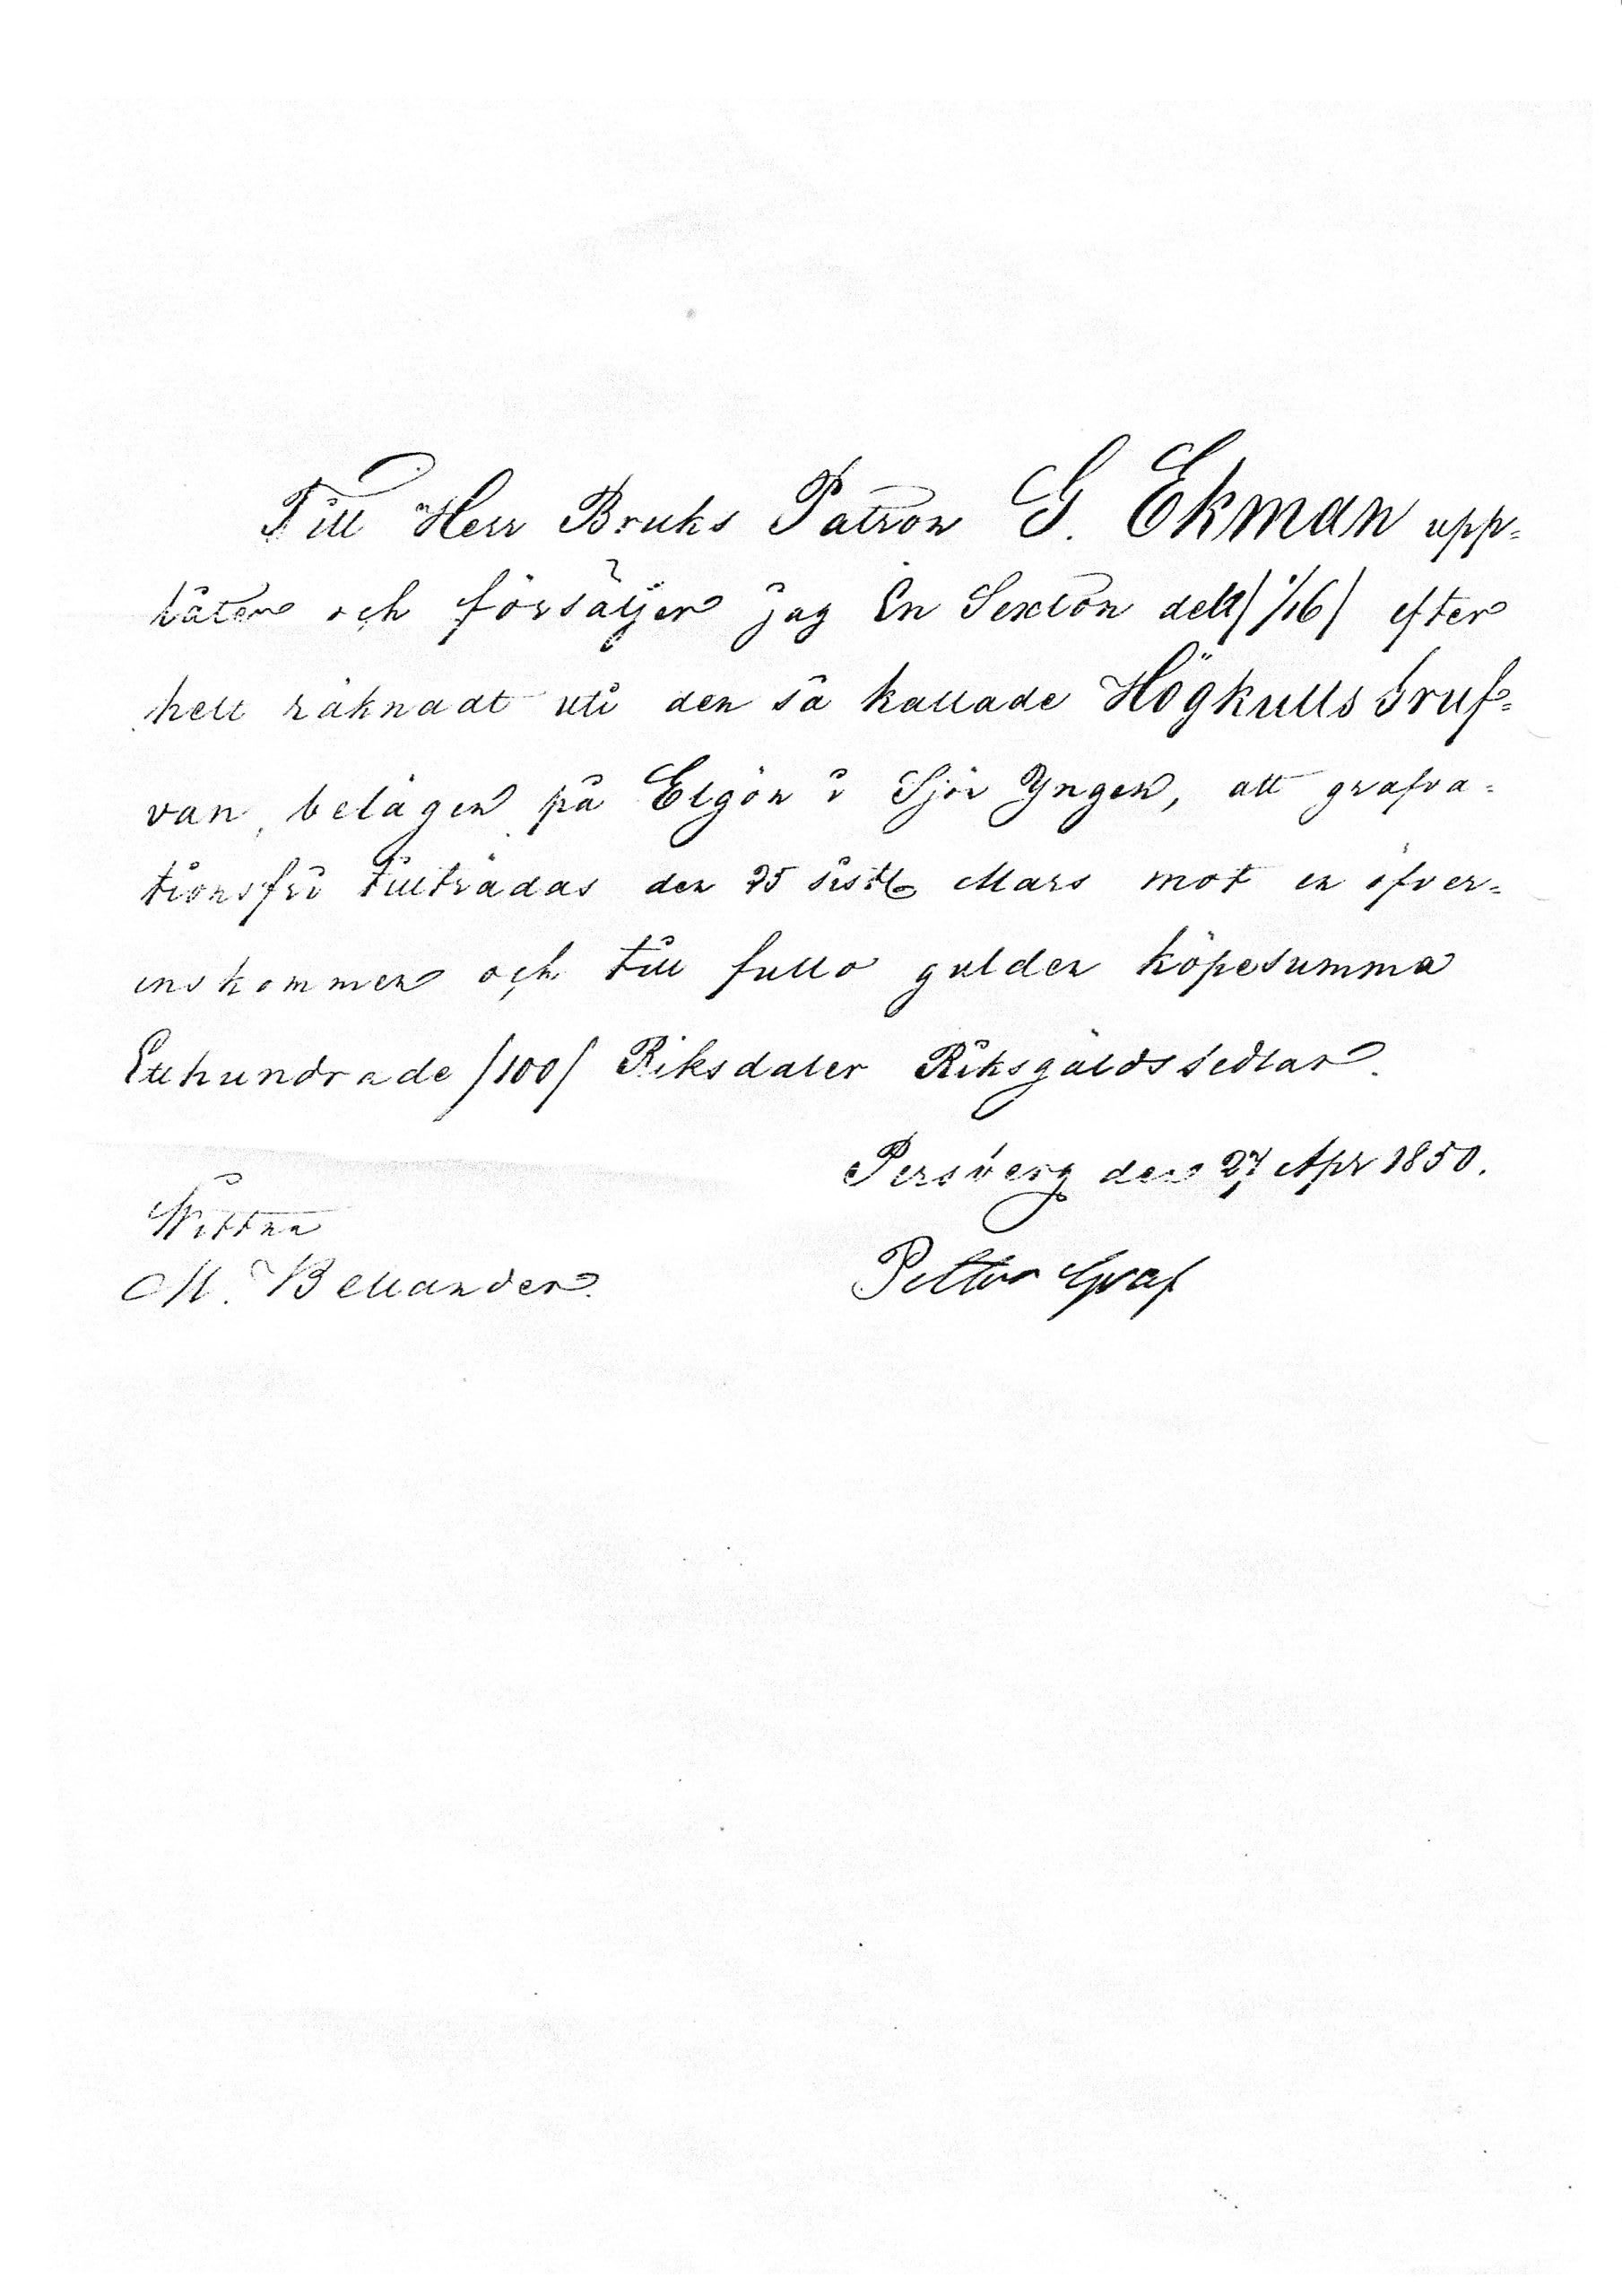 Till Herr Bruks Patron G. Ekman upp=
låter och försäljer jag En Sexton del /1/16/ efter
helt räknadt uti den så kallade Högkulls Gruf=
van, belägen på Elgön i Sjön Yngen, att grafva=
tionsfri tillträdas den 25 sistl. Mars mot en öfver=
enskommen och till fullo gulden köpesumma
Etthundrade /100/ Riksdaler Riksgäldssedlar.
Persberg den 27 Apr 1850.
Wittna
M. Bellander.
Petter Graf